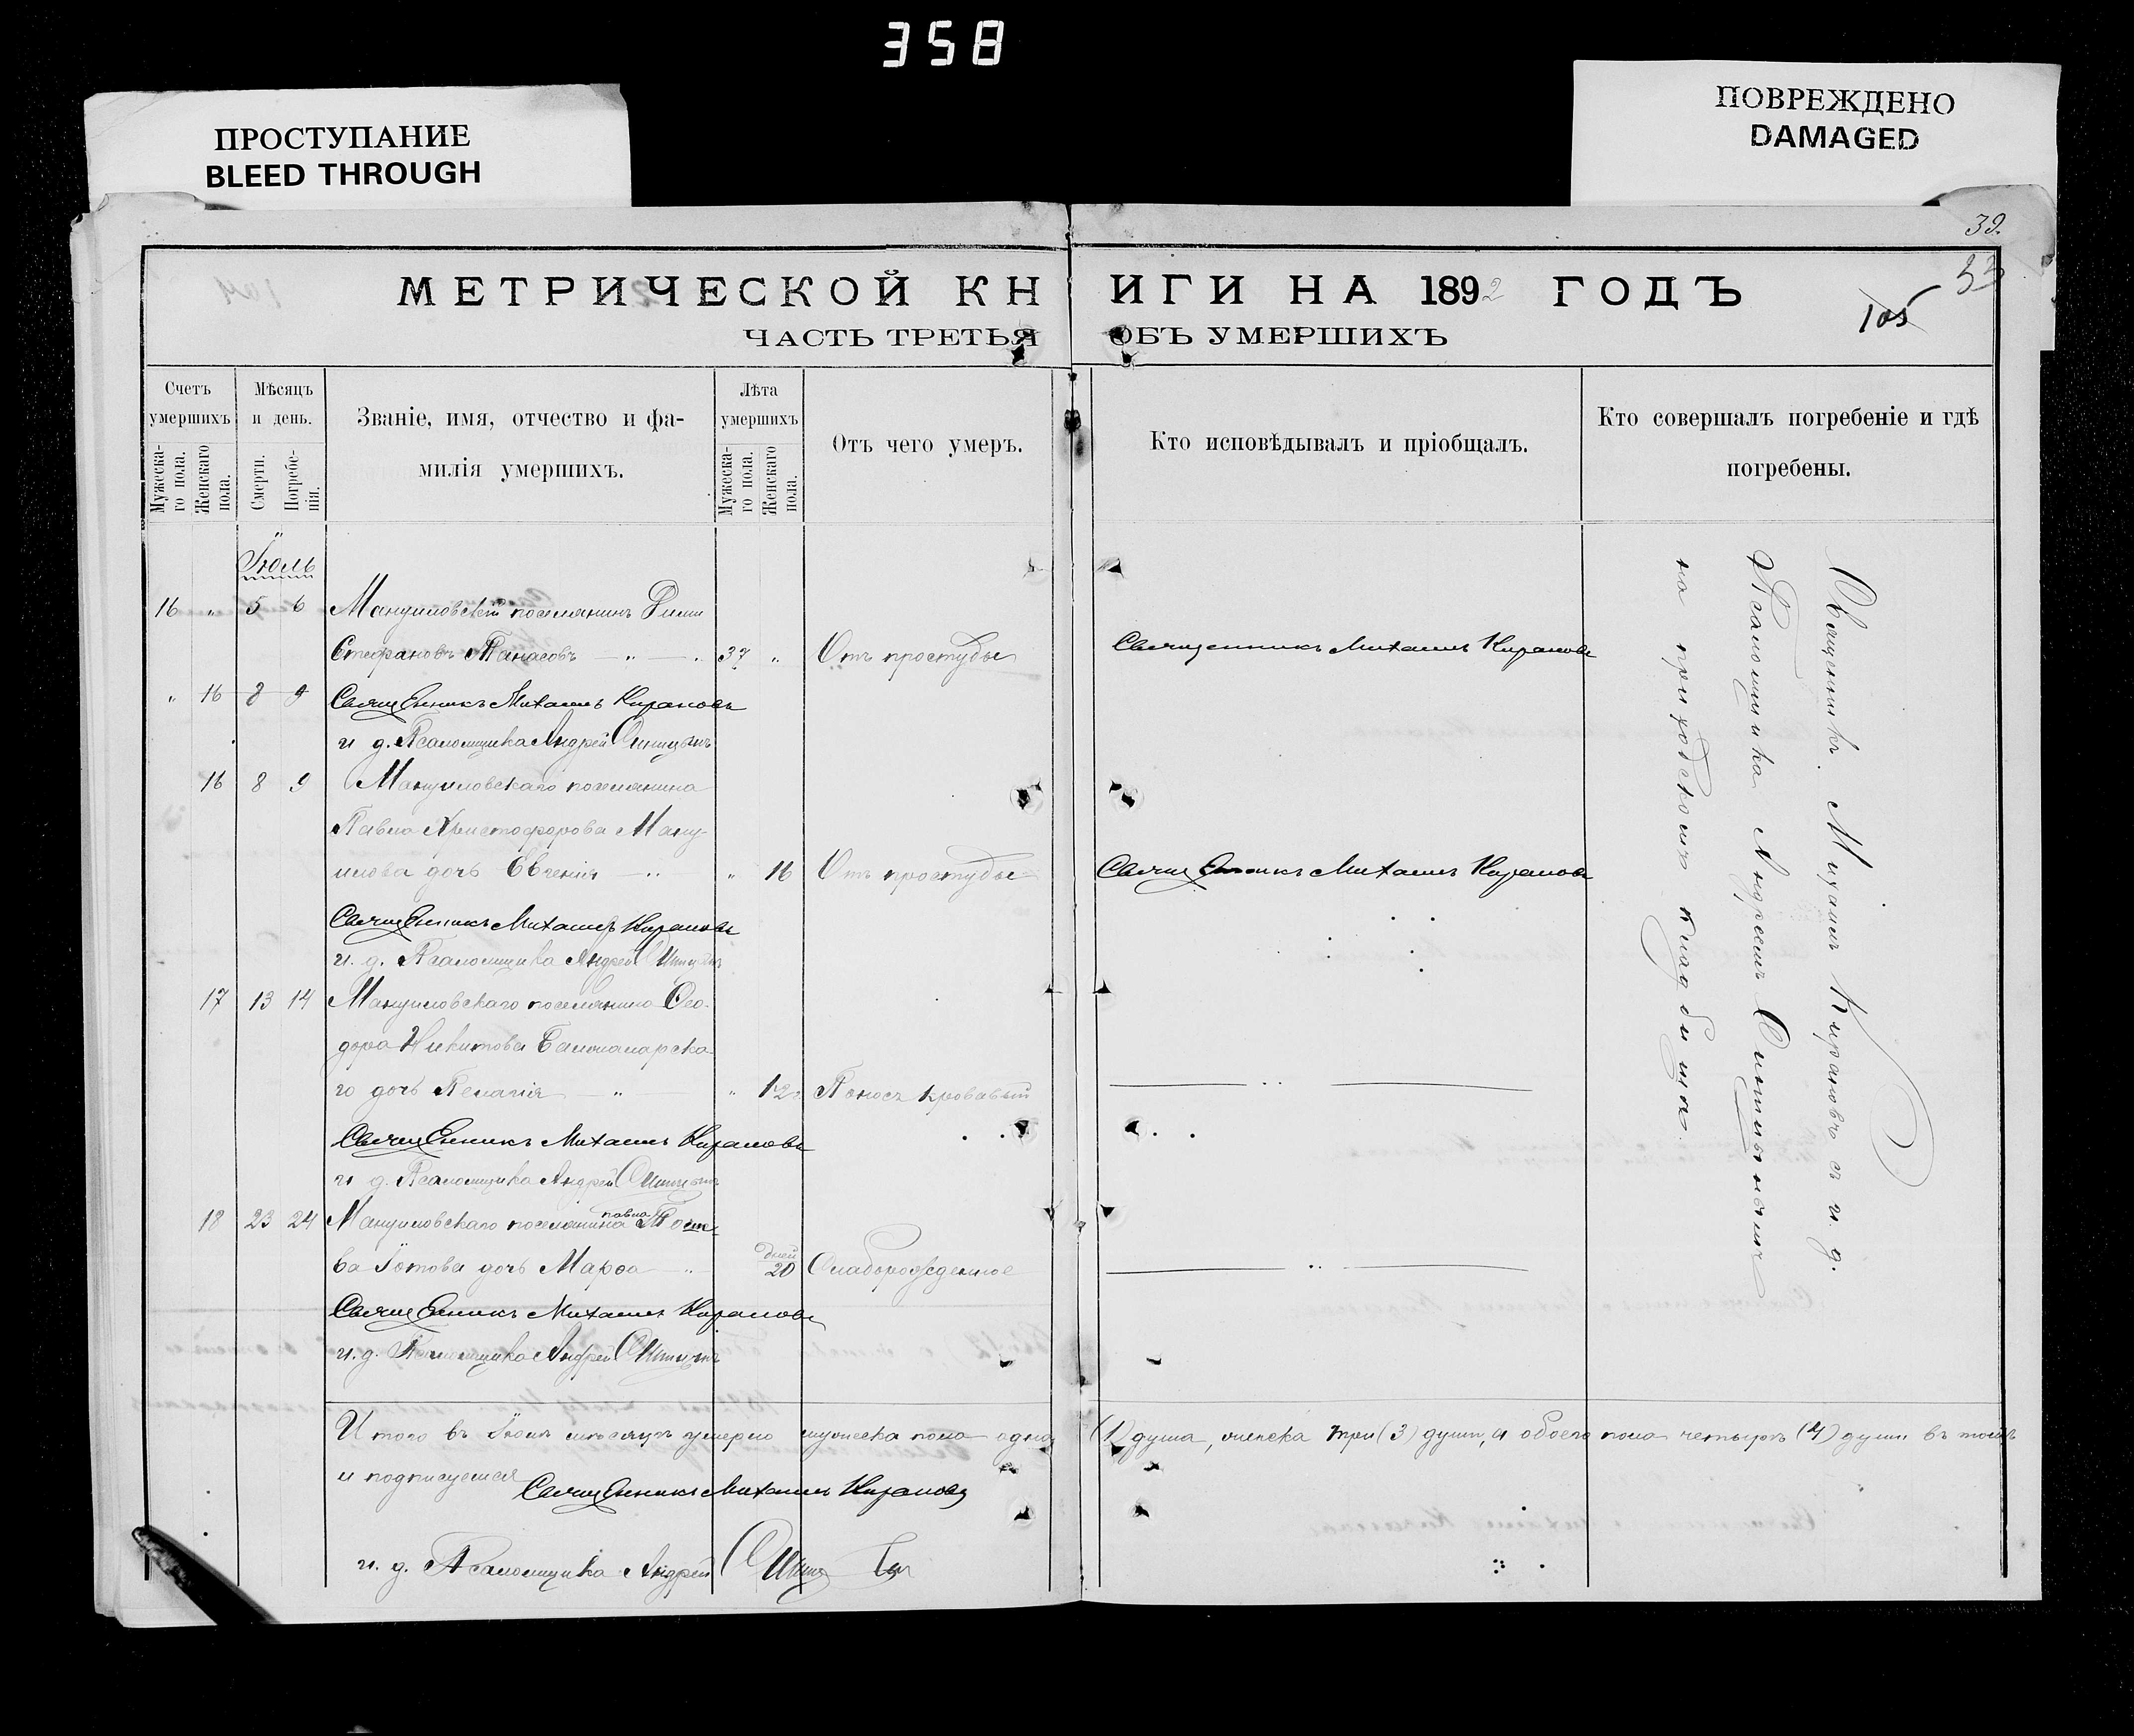 358
ПРОСТУПАНИЕ
BLEED THROUGH
ПОВРЕЖДЕНО
DAMAGED
39.
53
105
МЕТРИЧЕСКОЙ КНИГИ НА 1892 ГОДЪ
ЧАСТЬ ТРЕТЬЯ ОБЪ УМЕРШИХЪ
Счетъ умершихъ
Мужеска-го пола.
Женскаго пола.
Мѣсяцъ и день.
Смерти.
Погребе-нія.
Званіе, имя, отчество и фа-
милія умершихъ.
Лѣта умершихъ
Мужеска-го пола.
Женскаго пола.
Отъ чего умеръ.
Кто исповѣдывалъ и пріобщалъ.
Кто совершалъ погребеніе и гдѣ
погребены.
Іюль
16 " 5 6 Мануиловскій поселянинъ
Стефановъ Танасовъ — " — 37 " Отъ простуды Священникъ Михаилъ Кирановъ
" 16 8 9 Священникъ Михаилъ Кирановъ
и д. Псаломщика Андрей Синицынъ
16 8 9 Мануиловскаго поселянина
Павла Христофорова Ману-
илова дочь Евгенія — " " 16 Отъ простуды Священникъ Михаилъ Кирановъ
Священникъ Михаилъ Кирановъ
и. д. Псаломщика Андрей Синицынъ
17 13 14 Мануиловскаго поселянина Ѳео-
дора Никитова
го дочь Пелагія — " — " 1 2 Поносъ кровавый
Священникъ Михаилъ Кирановъ
и д. Псаломщика Андрей Синицынъ
18 23 24 Мануиловскаго поселянина Павла
ва Іотова дочь Марѳа " дней 20 Слаборожденное
Священникъ Михаилъ Кирановъ
и. д. Псаломщика Андрей Синицынъ
Священникъ Михаилъ Кирановъ съ и. д.
Псаломщика Андреемъ Синицынымъ
на приходскомъ кладбища.
Итого въ Іюлѣ мѣсяцѣ умерло мужеска пола одна (1) душа, женска три (3) души, а обоего пола четыре (4) души въ томъ
и подписуемся Священникъ Михаилъ Кирановъ
и. д. Псаломщика Андрей Синицынъ